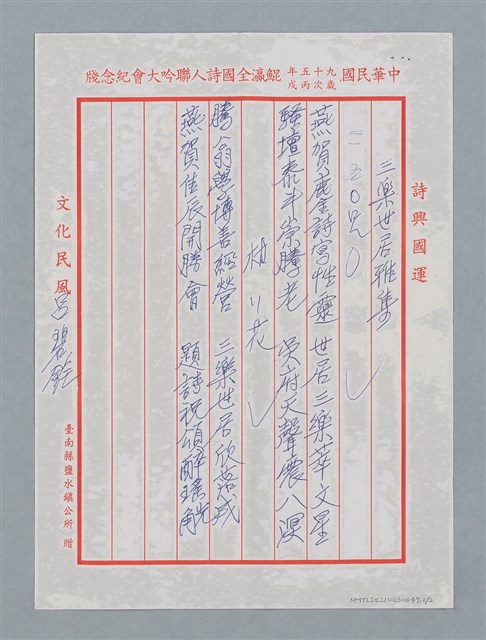 中華民國九十五年歲次丙戌鯤瀛全國詩人聯吟大會紀念牋
詩興國運
三樂世居雅集
燕賀慶詩寫性靈 世居三樂萃文星
騷壇泰斗崇騰老 吳府天聲震八溟
騰翁學博善經營 三樂世居欣落成
燕賀佳辰開勝會 題詩祝頌醉瑤觥
文化民風
呂碧銓
臺南縣鹽水鎮公所 贈
NMTL20210030049.2/2